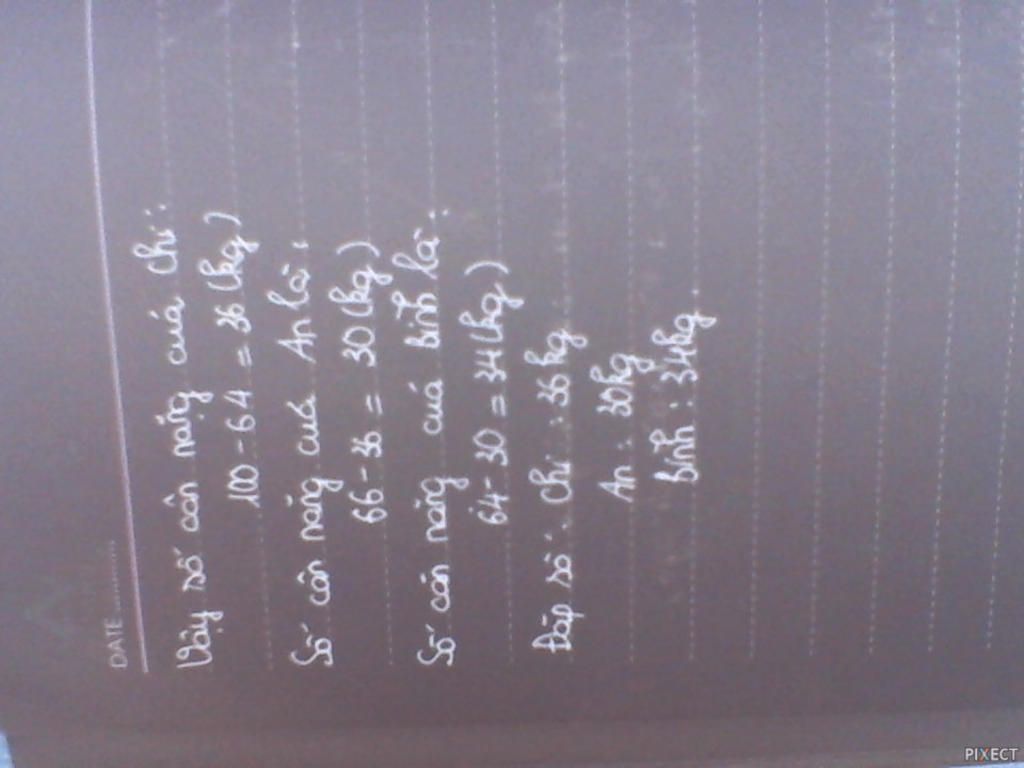 DATE..............
Vậy số cân nặng của Chi :
100 - 64 = 36 (kg)
Số cân nặng của An là :
66 - 36 = 30 (kg)
Số cân nặng của bình là :
64 - 30 = 34 (kg)
Đáp số : Chi : 36 kg
An : 30kg
bình : 34kg.
PIXECT